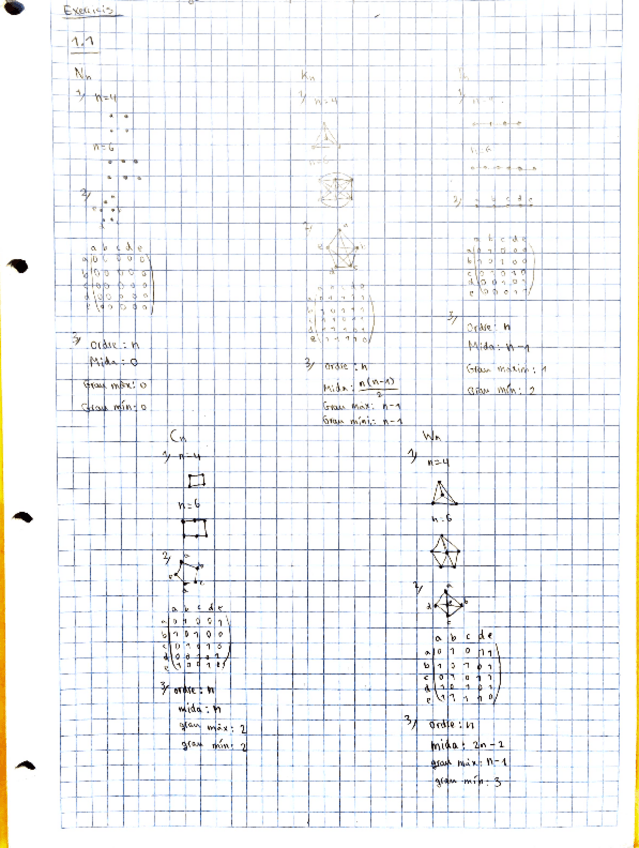 Exercicis
1.1
Nn
1) n=4
n=6
2)
a b c d e
a 0 0 0 0 0
b 0 0 0 0 0
c 0 0 0 0 0
d 0 0 0 0 0
e 0 0 0 0 0
3) Ordre: n
Mida: 0
Grau màx: 0
Grau mín: 0
Kn
1) n=4
n=6
2)
a
b
c
d
3) Ordre: n
Mida: n(n-1)/2
Grau max: n-1
Grau mini: n-1
1)
n=6
2) a b c d e
a b c d e
3)
Ordre: n
Mida: n-1
Grau màxim: 1
Grau mín: 2
Cn
1) n=4
n=6
2) a
a b c d e
a 0 1 0 0 1
b 1 0 1 0 0
c 0 1 0 1 0
d 0 0 1 0 1
e 1 0 0 1 0
3) ordre: n
mida: n
grau màx: 2
grau mín: 2
Wn
1) n=4
n=6
2) a
d e b
c
a b c d e
a 0 1 0 1 1
b 1 0 1 0 1
c 0 1 0 1 1
d 1 0 1 0 1
e 1 1 1 1 0
3) Ordre: n
mida: 2n-2
grau màx: n-1
grau mín: 3